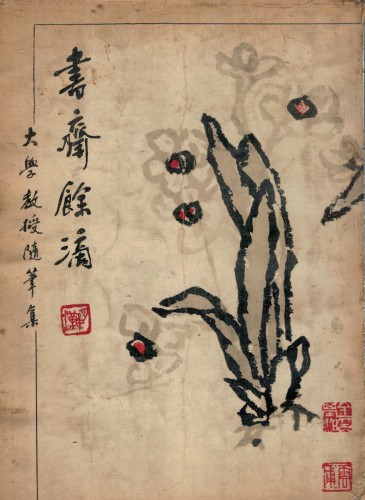 書齋餘滴
大學敎授隨筆集